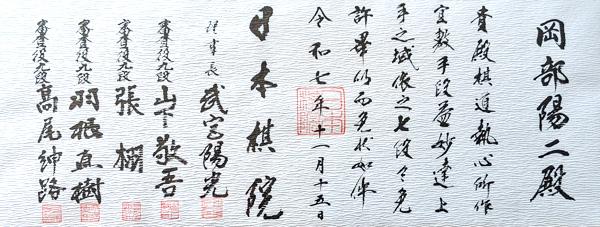 岡部陽二殿
貴殿棋道執心所作
宜敷手段益妙達上
手之域依之七段令免
許畢仍而免状如件
令和七年十一月十五日
日本棋院
理事長 武宮陽光
審査役九段 山下敬吾
審査役九段 張栩
審査役九段 羽根直樹
審査役九段 髙尾紳路